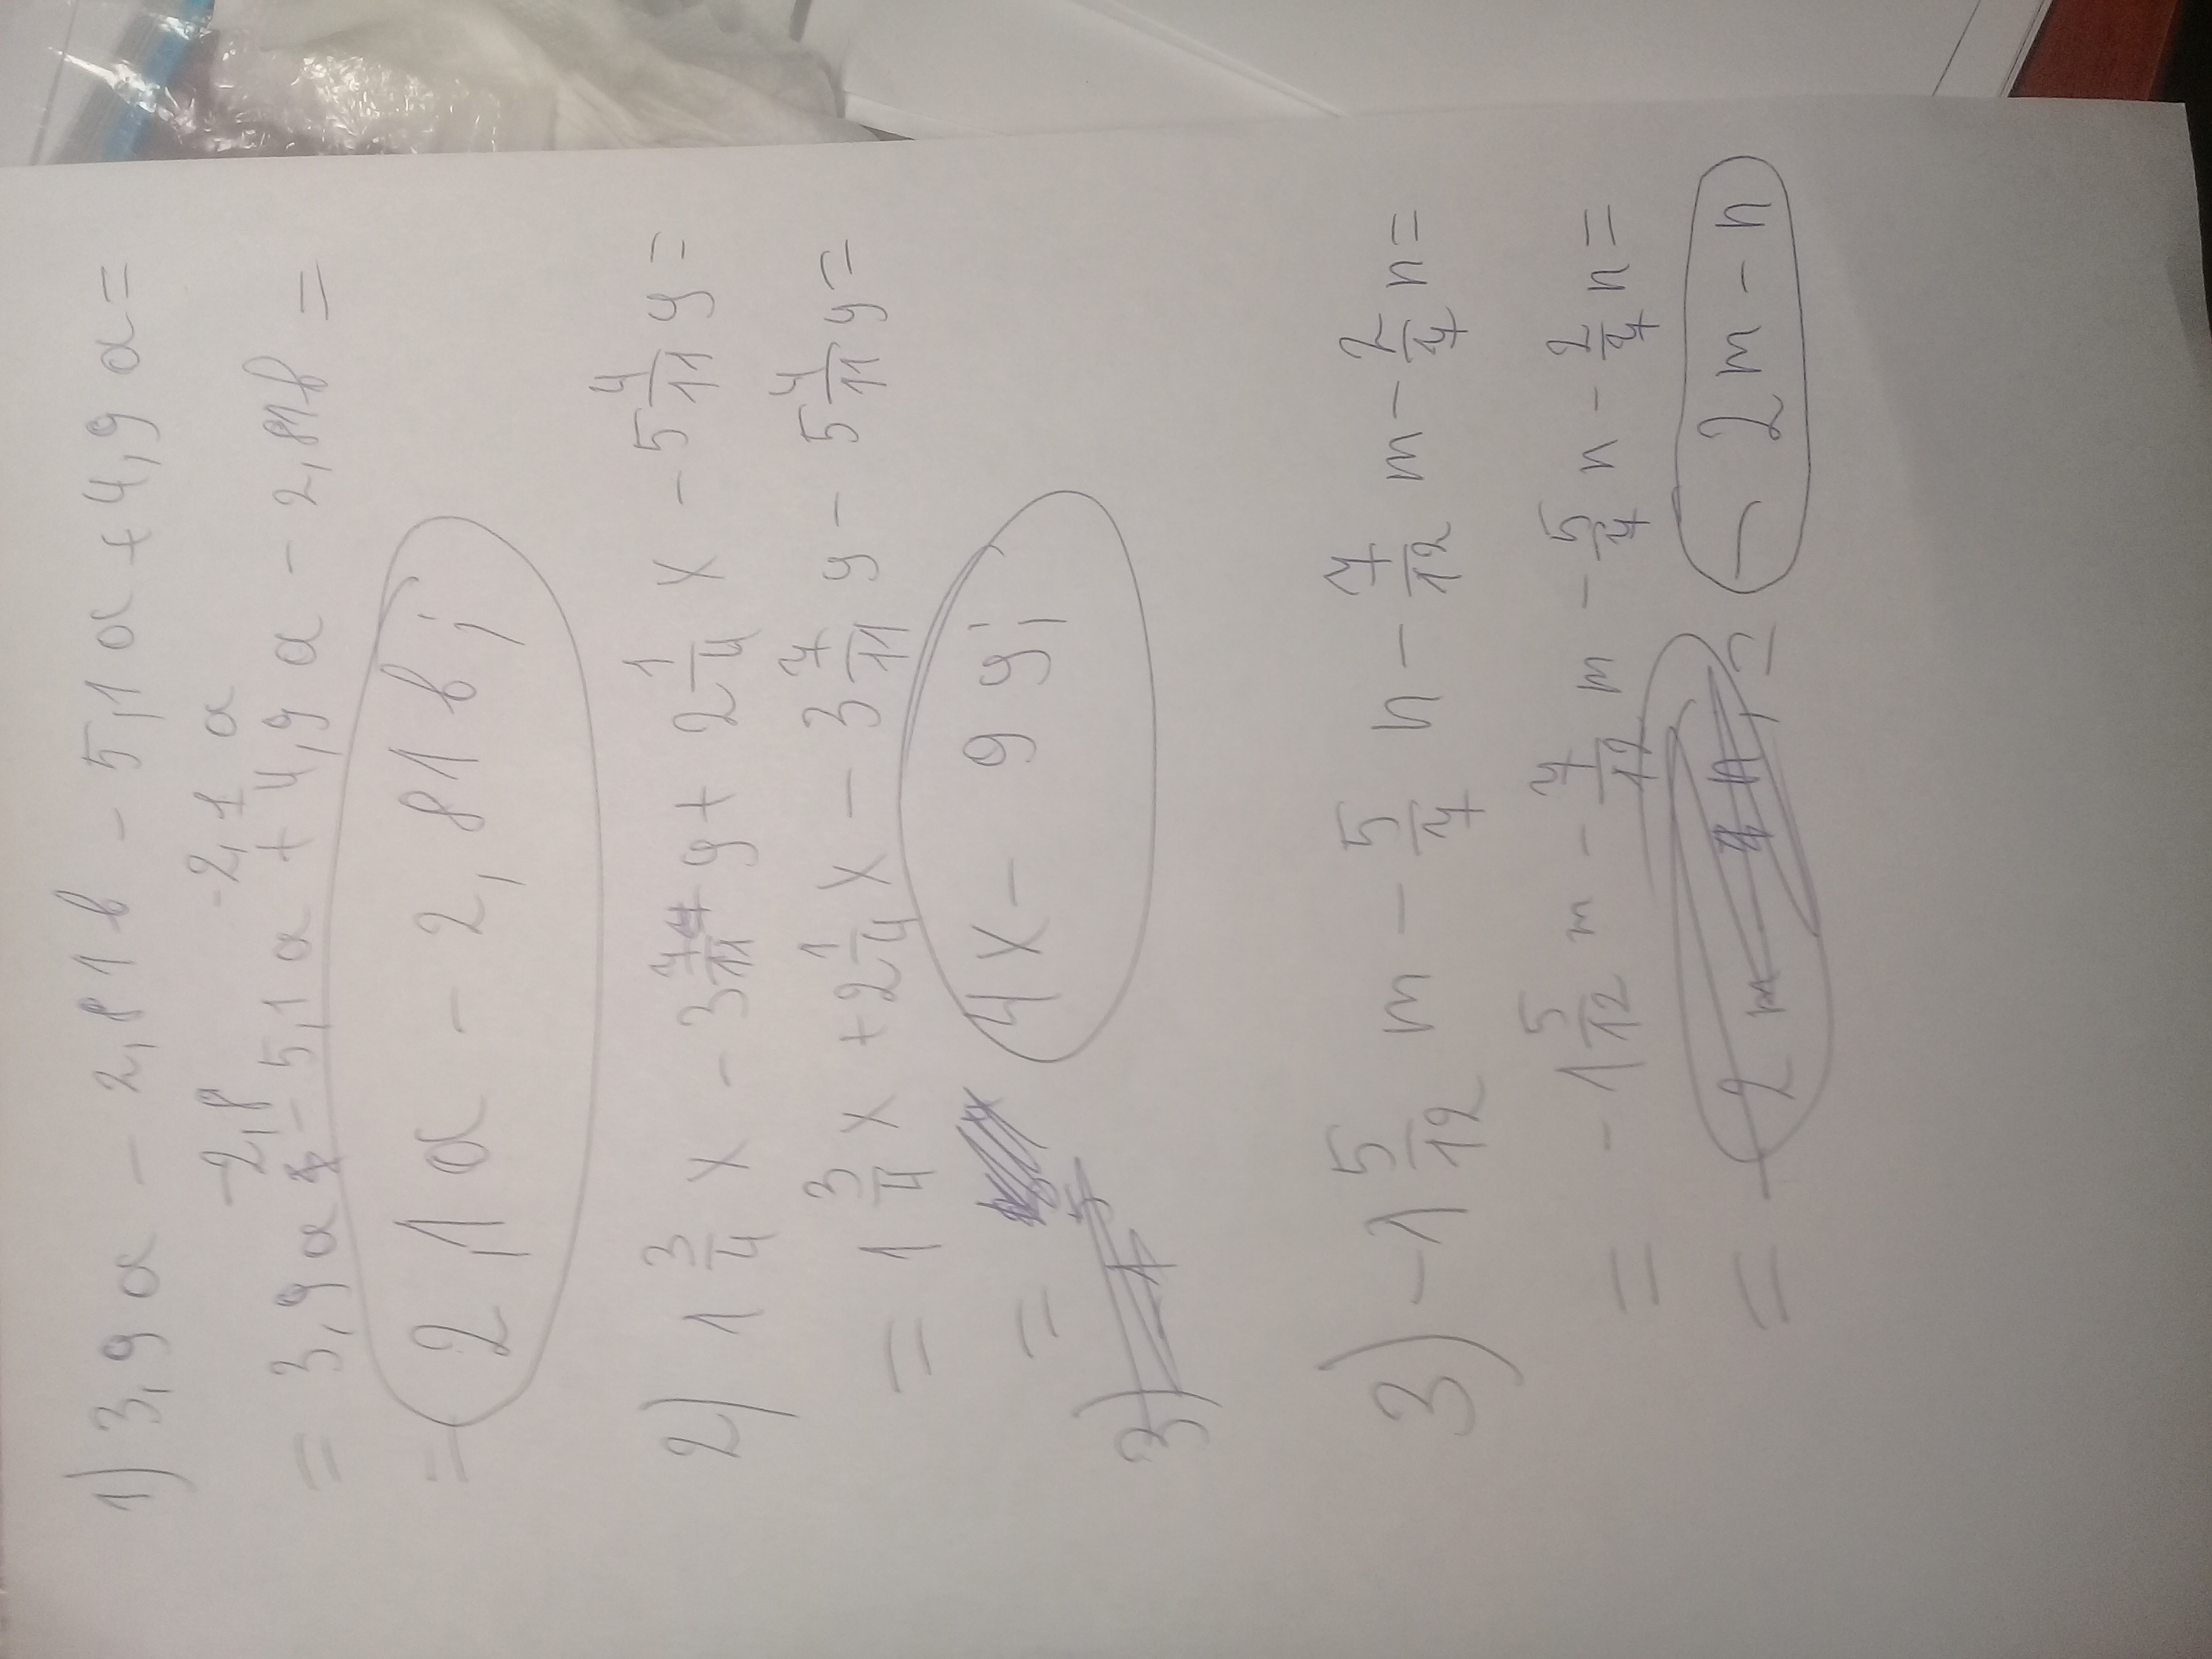 1) 3,9a - 2,81b - 5,1a + 4,9a =
-2,18 -2,1a
= 3,9a - 5,1a + 4,9a - 2,81b =
= 2,1a - 2,81b;
2) 1 3/4 x - 3 7/11 y + 2 1/4 x - 5 4/11 y =
= 1 3/4 x + 2 1/4 x - 3 7/11 y - 5 4/11 y =
= 4x - 9y;
3)
3) -1 5/12 m - 5/7 n - 7/12 m - 2/7 n =
= -1 5/12 m - 7/12 m - 5/7 n - 2/7 n =
= - 2m = - 2m - n